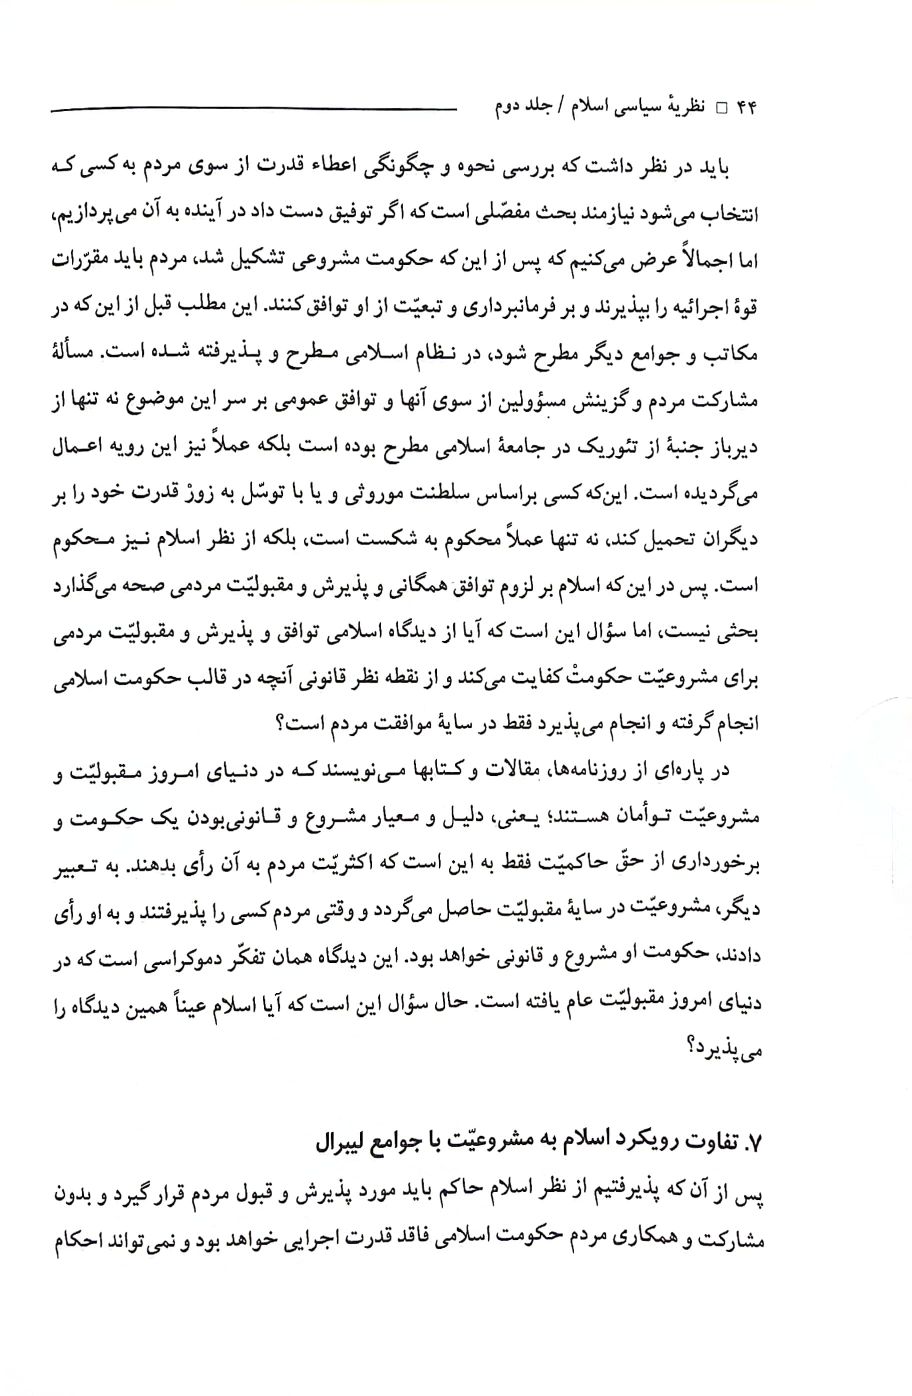 ۴۴ □ نظریهٔ سیاسی اسلام / جلد دوم
باید در نظر داشت که بررسی نحوه و چگونگی اعطاء قدرت از سوی مردم به کسی که
انتخاب می‌شود نیازمند بحث مفصّلی است که اگر توفیق دست داد در آینده به آن می‌پردازیم،
اما اجمالاً عرض می‌کنیم که پس از این که حکومت مشروعی تشکیل شد، مردم باید مقرّرات
قوهٔ اجرائیه را بپذیرند و بر فرمانبرداری و تبعیّت از او توافق کنند. این مطلب قبل از این که در
مکاتب و جوامع دیگر مطرح شود، در نظام اسلامی مطرح و پذیرفته شده است. مسألهٔ
مشارکت مردم و گزینش مسؤولین از سوی آنها و توافق عمومی بر سر این موضوع نه تنها از
دیرباز جنبهٔ از تئوریک در جامعهٔ اسلامی مطرح بوده است بلکه عملاً نیز این رویه اعمال
می‌گردیده است. این‌که کسی براساس سلطنت موروثی و یا با توسّل به زورْ قدرت خود را بر
دیگران تحمیل کند، نه تنها عملاً محکوم به شکست است، بلکه از نظر اسلام نیز محکوم
است. پس در این که اسلام بر لزوم توافق همگانی و پذیرش و مقبولیّت مردمی صحه می‌گذارد
بحثی نیست، اما سؤال این است که آیا از دیدگاه اسلامی توافق و پذیرش و مقبولیّت مردمی
برای مشروعیّت حکومتْ کفایت می‌کند و از نقطه نظر قانونی آنچه در قالب حکومت اسلامی
انجام گرفته و انجام می‌پذیرد فقط در سایهٔ موافقت مردم است؟
در پاره‌ای از روزنامه‌ها، مقالات و کتابها می‌نویسند که در دنیای امروز مقبولیّت و
مشروعیّت توأمان هستند؛ یعنی، دلیل و معیار مشروع و قانونی‌بودن یک حکومت و
برخورداری از حقّ حاکمیّت فقط به این است که اکثریّت مردم به آن رأی بدهند. به تعبیر
دیگر، مشروعیّت در سایهٔ مقبولیّت حاصل می‌گردد و وقتی مردم کسی را پذیرفتند و به او رأی
دادند، حکومت او مشروع و قانونی خواهد بود. این دیدگاه همان تفکّر دموکراسی است که در
دنیای امروز مقبولیّت عام یافته است. حال سؤال این است که آیا اسلام عیناً همین دیدگاه را
می‌پذیرد؟
۷. تفاوت رویکرد اسلام به مشروعیّت با جوامع لیبرال
پس از آن که پذیرفتیم از نظر اسلام حاکم باید مورد پذیرش و قبول مردم قرار گیرد و بدون
مشارکت و همکاری مردم حکومت اسلامی فاقد قدرت اجرایی خواهد بود و نمی‌تواند احکام